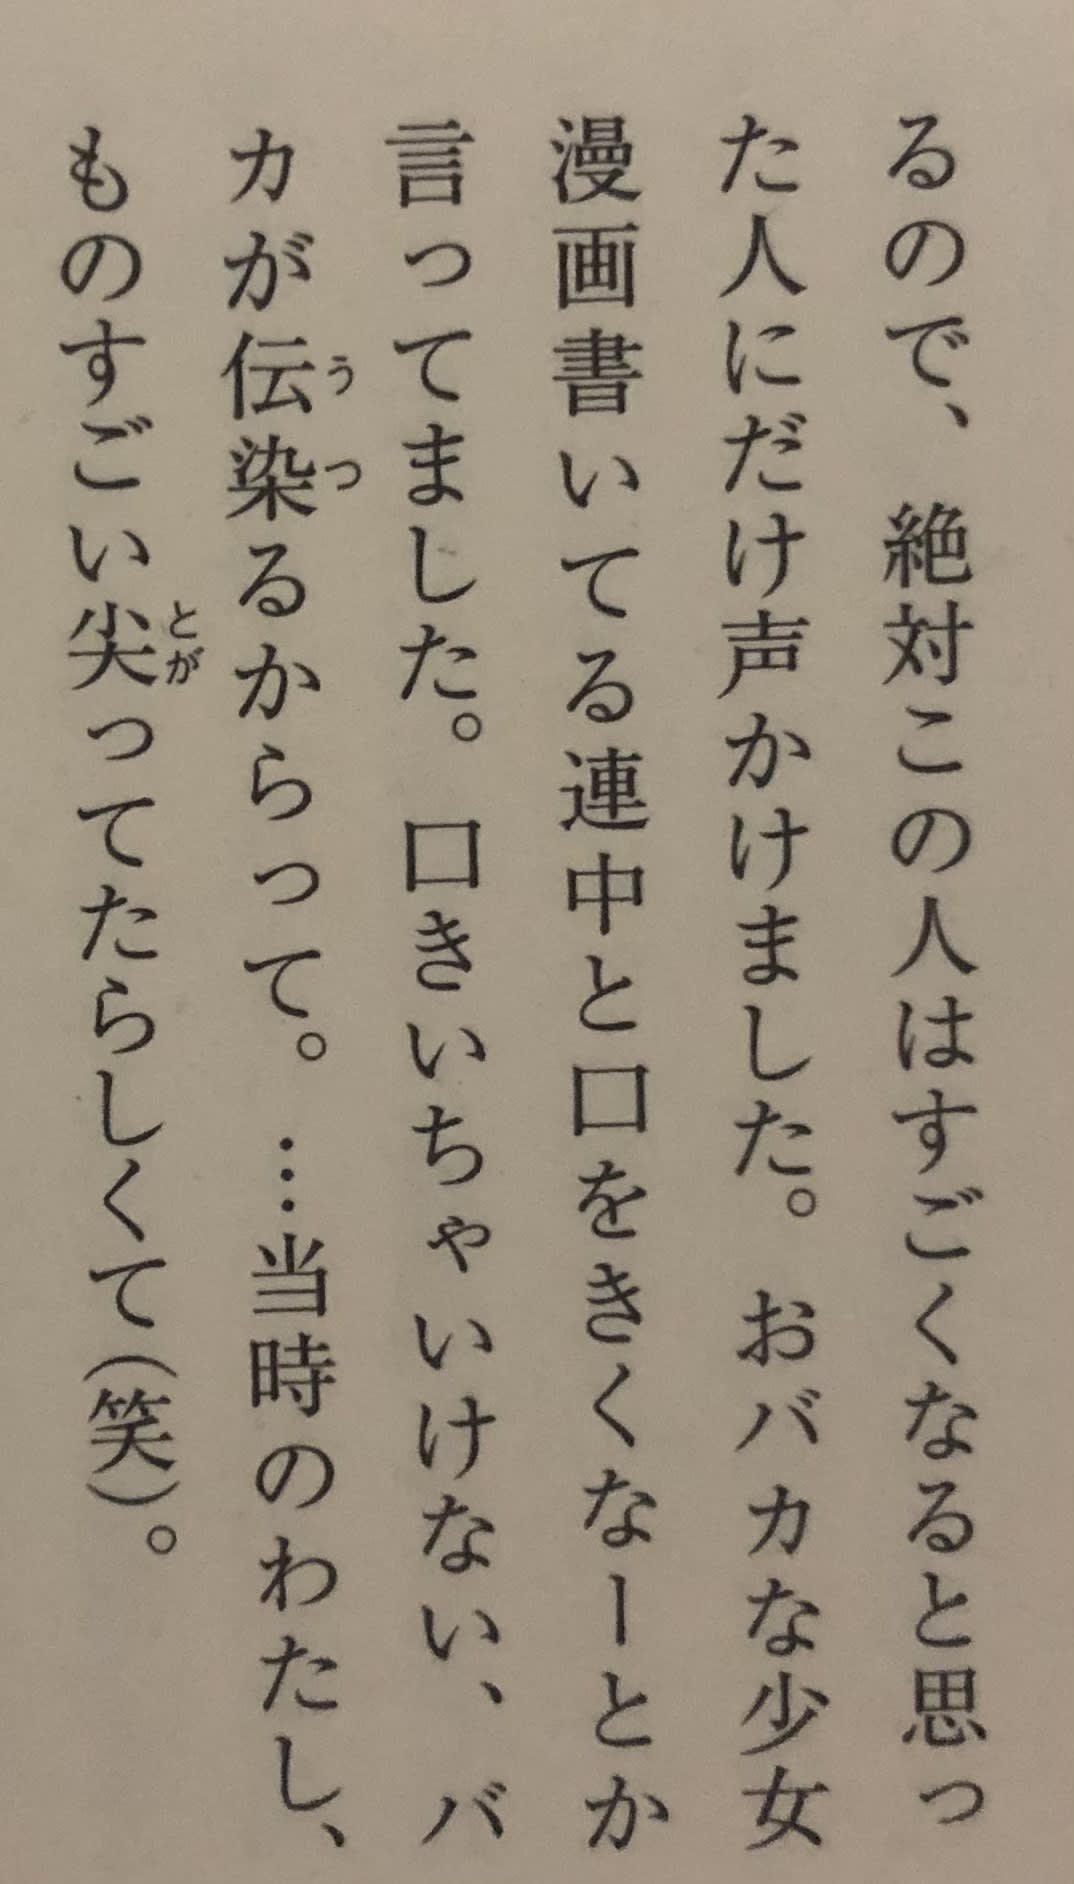 るので、絶対この人はすごくなると思っ
た人にだけ声かけました。おバカな少女
漫画書いてる連中と口をきくなーとか
言ってました。口きいちゃいけない、バ
カが伝染るからって。…当時のわたし、
ものすごい尖ってたらしくて(笑)。